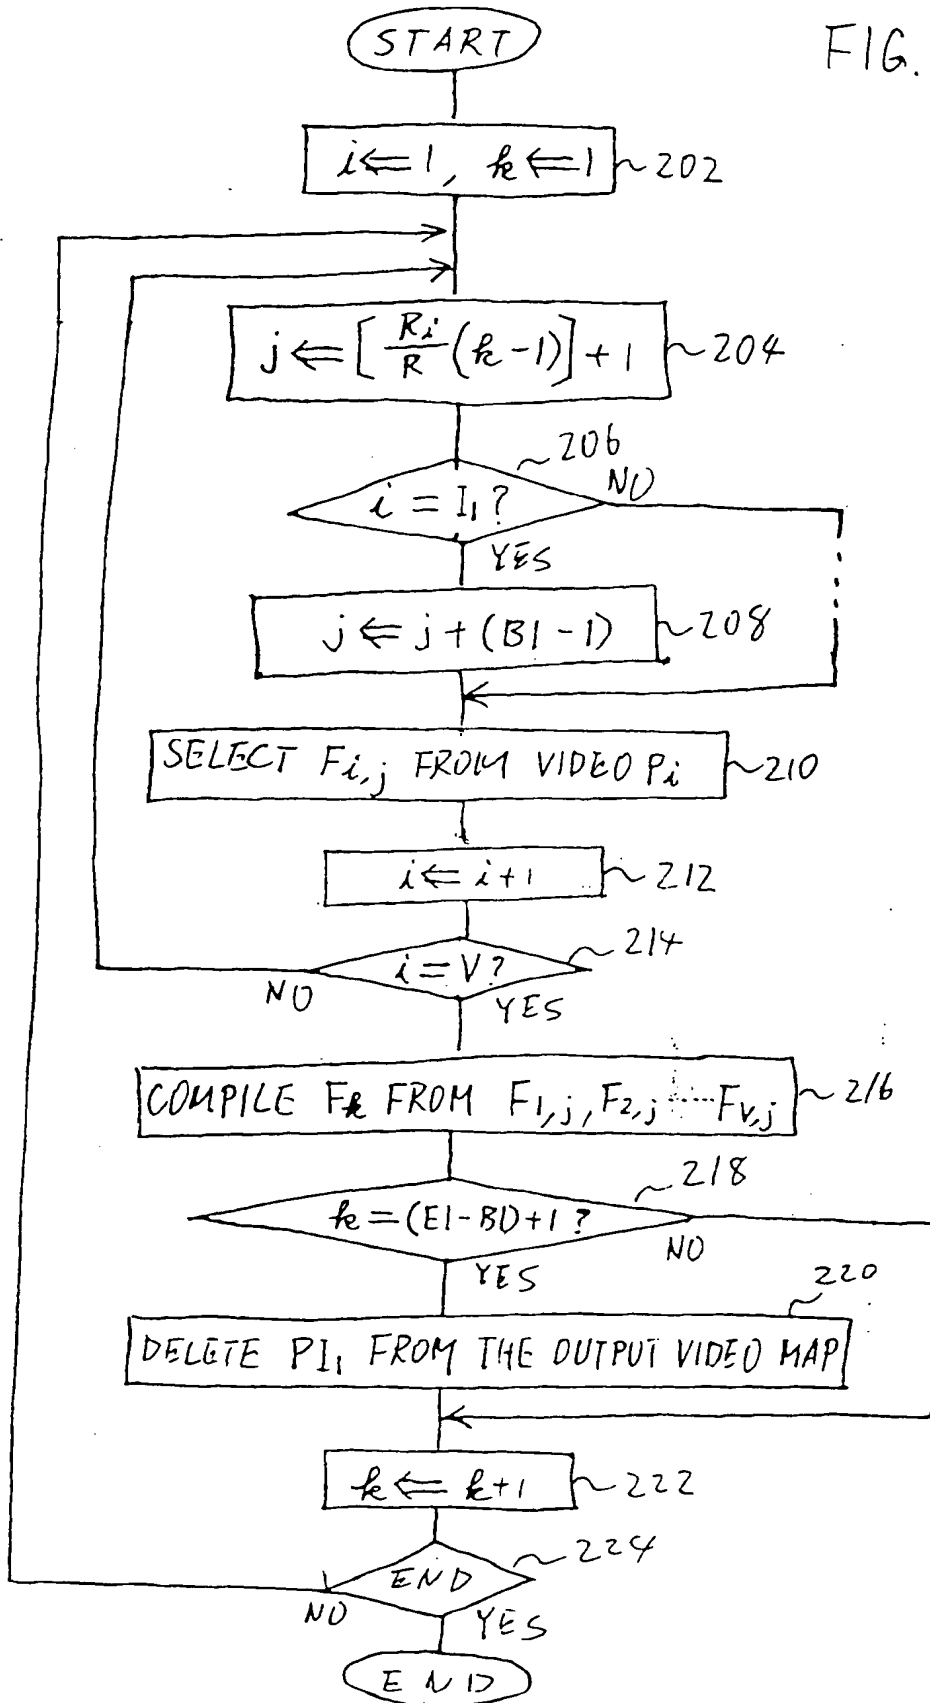 START
FIG.
i⇐1, k⇐1 202
j⇐[Ri/R (k-1)]+1 204
206
i=I1? NO
YES
j⇐j+(B1-1) 208
SELECT Fi,j FROM VIDEO Pi 210
i⇐i+1 212
214
i=V?
NO YES
COMPILE Fk FROM F1,j, F2,j ---- Fv,j 216
218
k=(E1-B1)+1?
NO
YES
220
DELETE PI1 FROM THE OUTPUT VIDEO MAP
k⇐k+1 222
224
END
NO YES
END